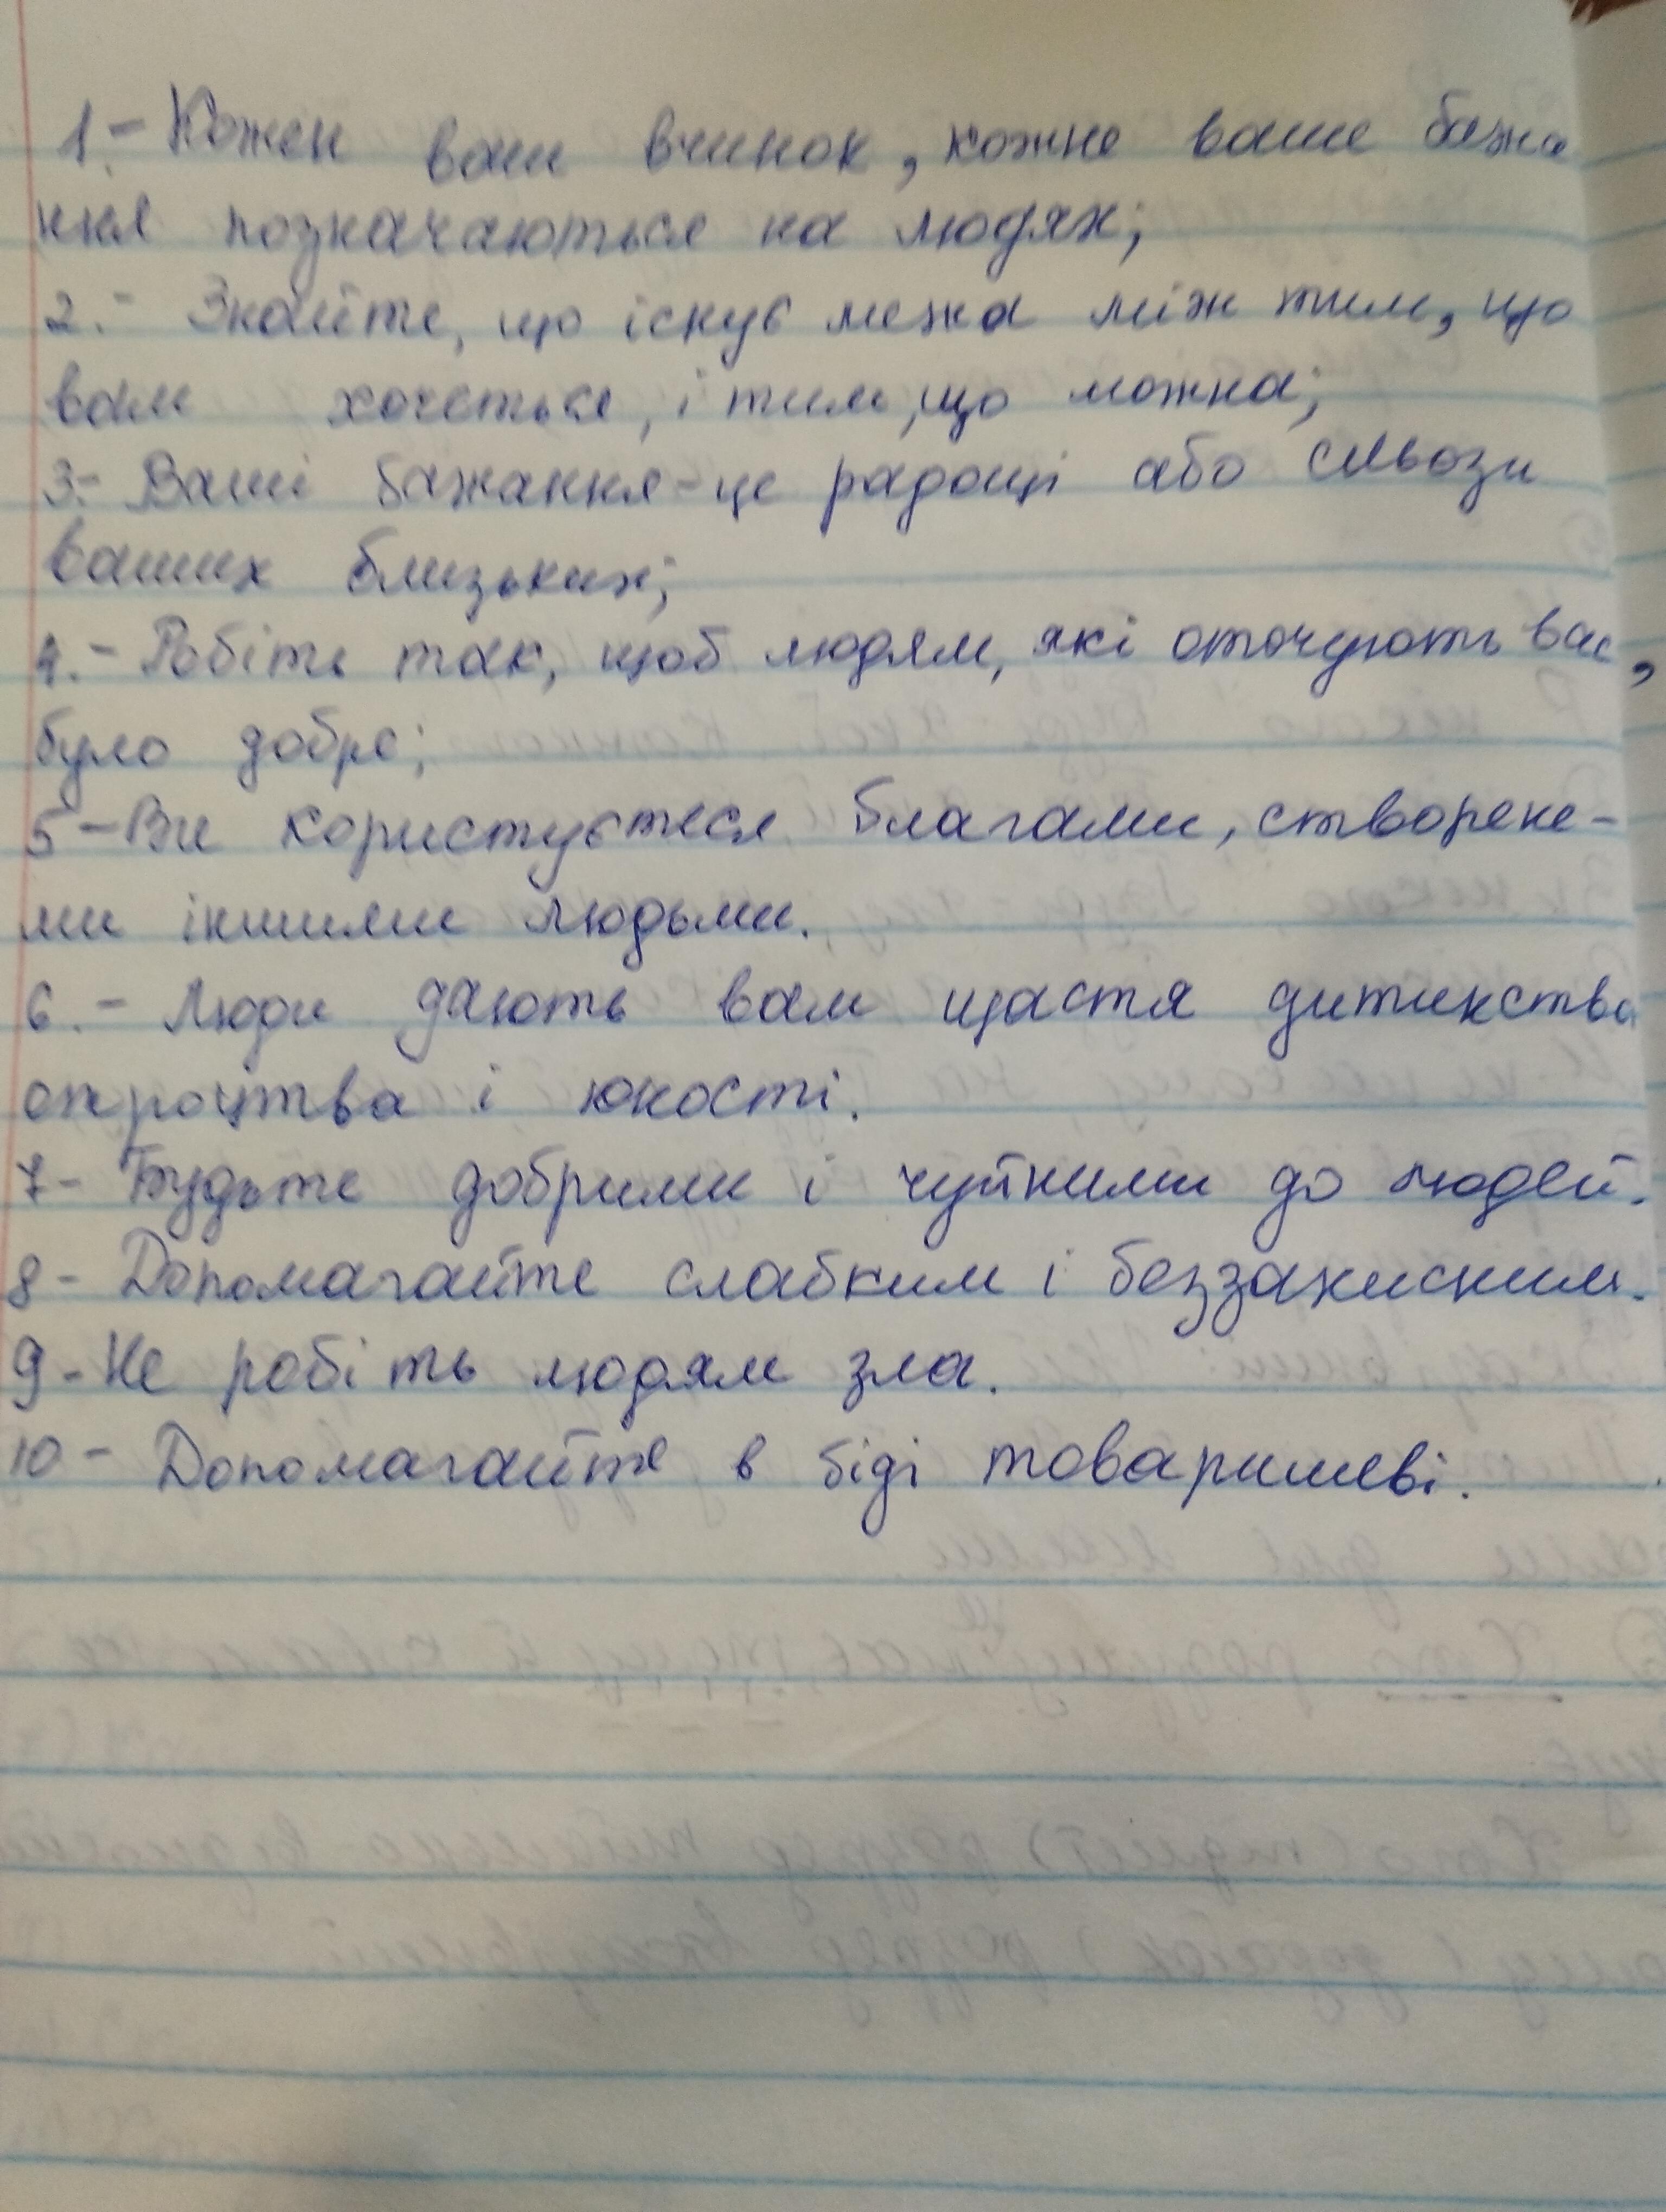 1.- Кожен ваш вчинок, кожне ваше бажа
ння позначаються на людях;
2.- Знайте, що існує межа між тим, що
вам хочеться, і тим, що можна;
3.- Ваші бажання - це радощі або сльози
ваших близьких;
4.- Робіть так, щоб людям, які оточують вас,
було добре;
5 - Ви користуєтеся благами, створене-
ми іншими людьми.
6.- Люди дають вам щастя дитинства
отроцтва і юності.
7- Будьте добрими і чуйними до людей.
8- Допомагайте слабким і беззахисним.
9- Не робіть людям зла.
10- Допомагайте в біді товаришеві.